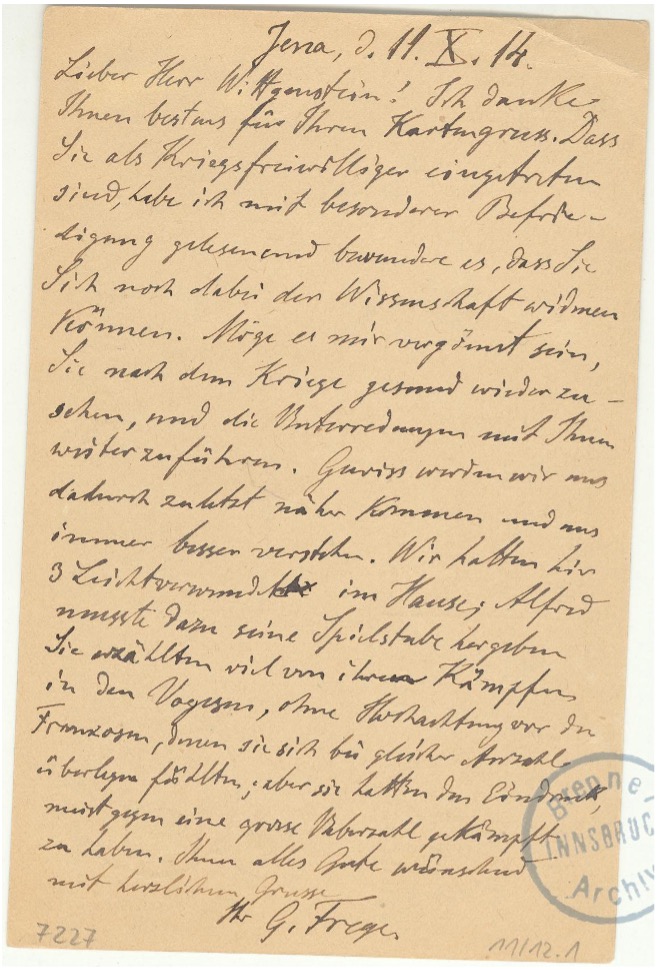 Jena, d. 11. X. 14.
Lieber Herr Wittgenstein! Ich danke
Ihnen bestens für Ihren Kartengruss. Dass
Sie als Kriegsfreiwilliger eingetreten
sind, habe ich mit besonderer Befrie-
digung gelesen und bewundere es, dass Sie
Sich noch dabei der Wissenschaft widmen
können. Möge es mir vergönnt sein,
Sie nach dem Kriege gesund wieder zu-
sehen, und die Unterredungen mit Ihnen
weiterzuführen. Gewiss werden wir uns
dadurch zuletzt näher kommen und uns
immer besser verstehen. Wir hatten hier
3 Leichtverwundete im Hause; Alfred
musste dazu seine Spielstube hergeben
Sie erzählten viel von ihren Kämpfen
in den Vogesen, ohne Hochachtung vor den
Franzosen, denen sie sich bei gleicher Anzahl
überlegen fühlten; aber sie hatten den Eindruck,
meist gegen eine grosse Ueberzahl gekämpft
zu haben. Ihnen alles Gute wünschend
mit herzlichem Grusse
Ihr G. Frege.
Brenner-
INNSBRUCK
Archiv
7227
11/12.1